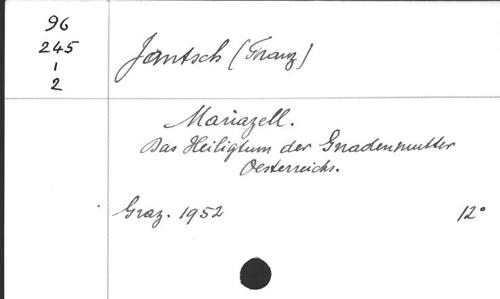 96
245
1
2
Jantsch (Franz)
Mariazell.
Das Heiligtum der Gnadenmutter
Oesterreichs.
Graz. 1952
12°